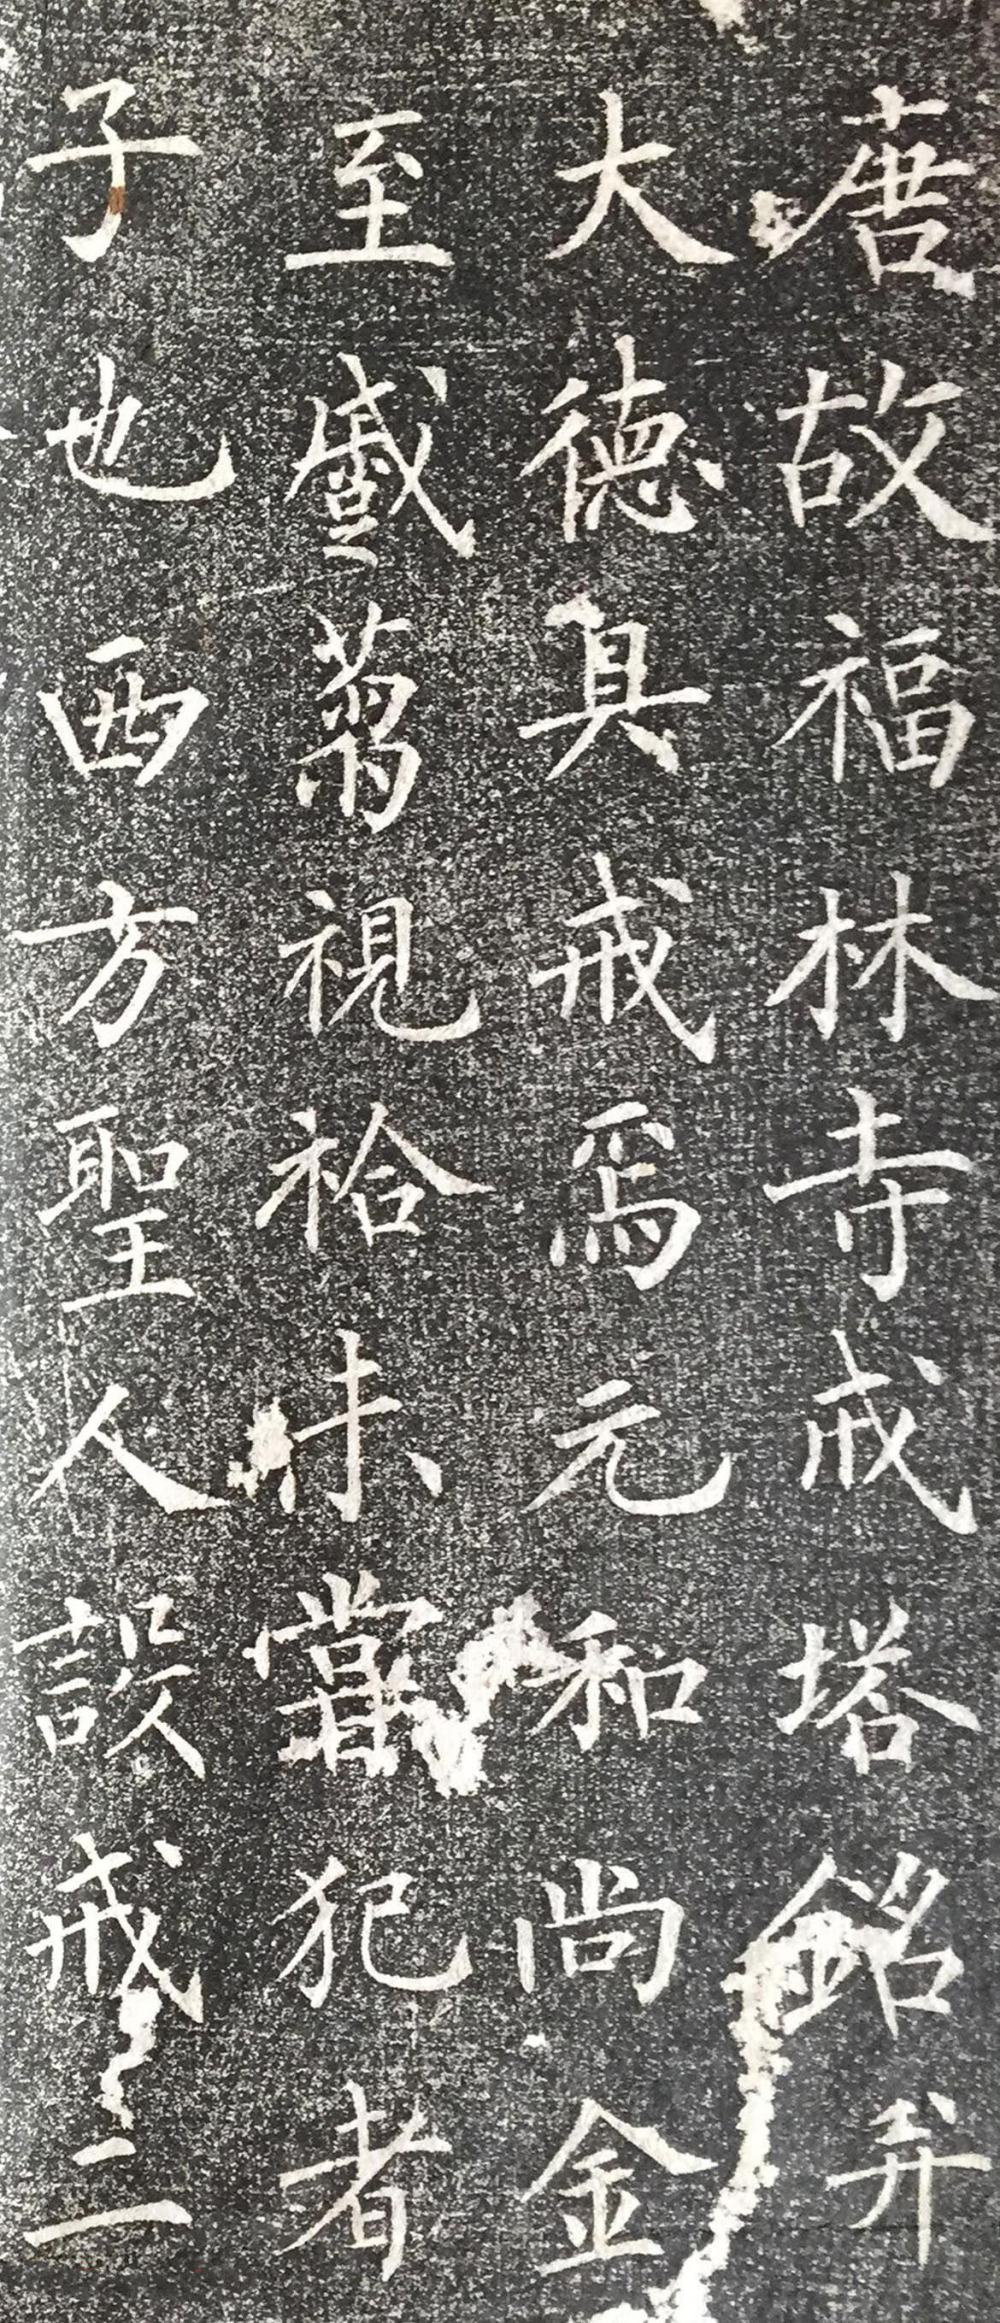 唐故福林寺戒塔銘并
大德具戒焉元和尚金
至戲蒭視袷未嘗犯者
子也西方聖人設戒二